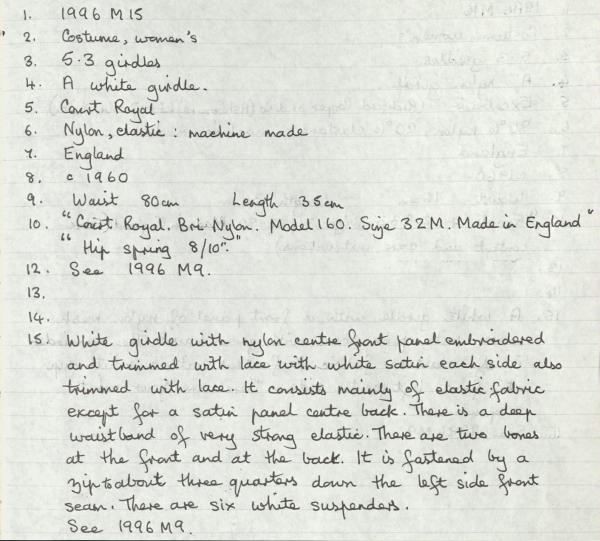 1. 1996 M15
2. Costume, women's
3. 5.3 girdles
4. A white girdle.
5. Court Royal
6. Nylon, elastic : machine made
7. England
8. c 1960
9. Waist 80cm Length 35cm
10. "Court Royal. Bri Nylon. Model 160. Size 32M. Made in England"
"Hip spring 8/10"."
12. See 1996 M9.
13.
14.
15. White girdle with nylon centre front panel embroidered
and trimmed with lace with white satin each side also
trimmed with lace. It consists mainly of elastic fabric
except for a satin panel centre back. There is a deep
waistband of very strong elastic. There are two bones
at the front and at the back. It is fastened by a
zip to about three quarters down the left side front
seam. There are six white suspenders.
See 1996 M9.